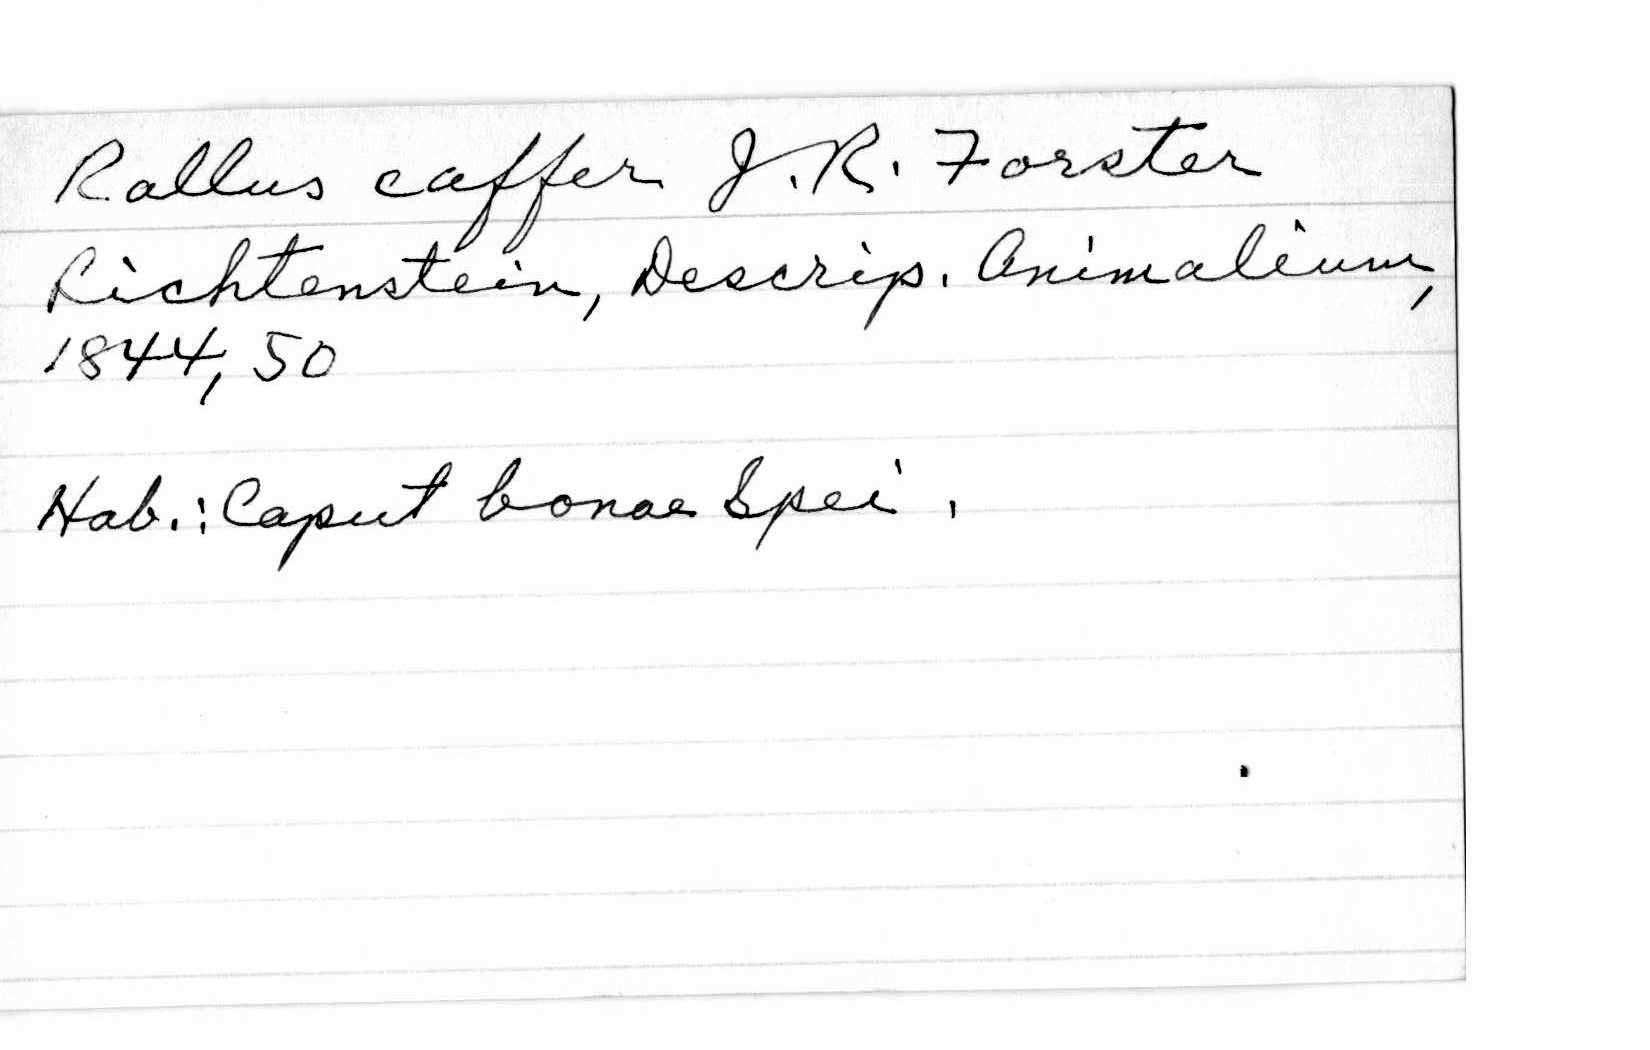 Rallus caffer J. R. Forster
Lichtenstein, Descrip. Animalium,
1844, 50
Hab.: Caput bonae Spei.